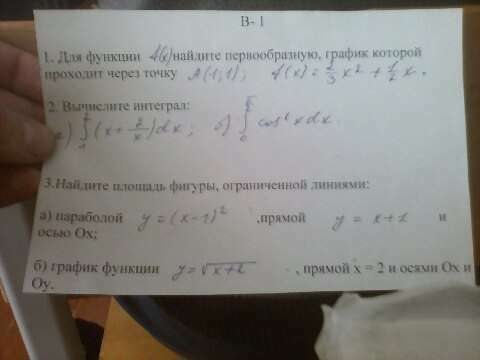 В- 1
1. Для функции f(x) найдите первообразную, график которой
проходит через точку A(1;1); f(x) = 2/3 x² + 1/2 x.
2. Вычислите интеграл:
а) ∫ (x + 2/x) dx; б) ∫ dx.
3.Найдите площадь фигуры, ограниченной линиями:
а) параболой y = (x-1)² ,прямой y = x+1 и
осью Ох;
б) график функции y = √x+2 , прямой x = 2 и осями Ох и
Оу.